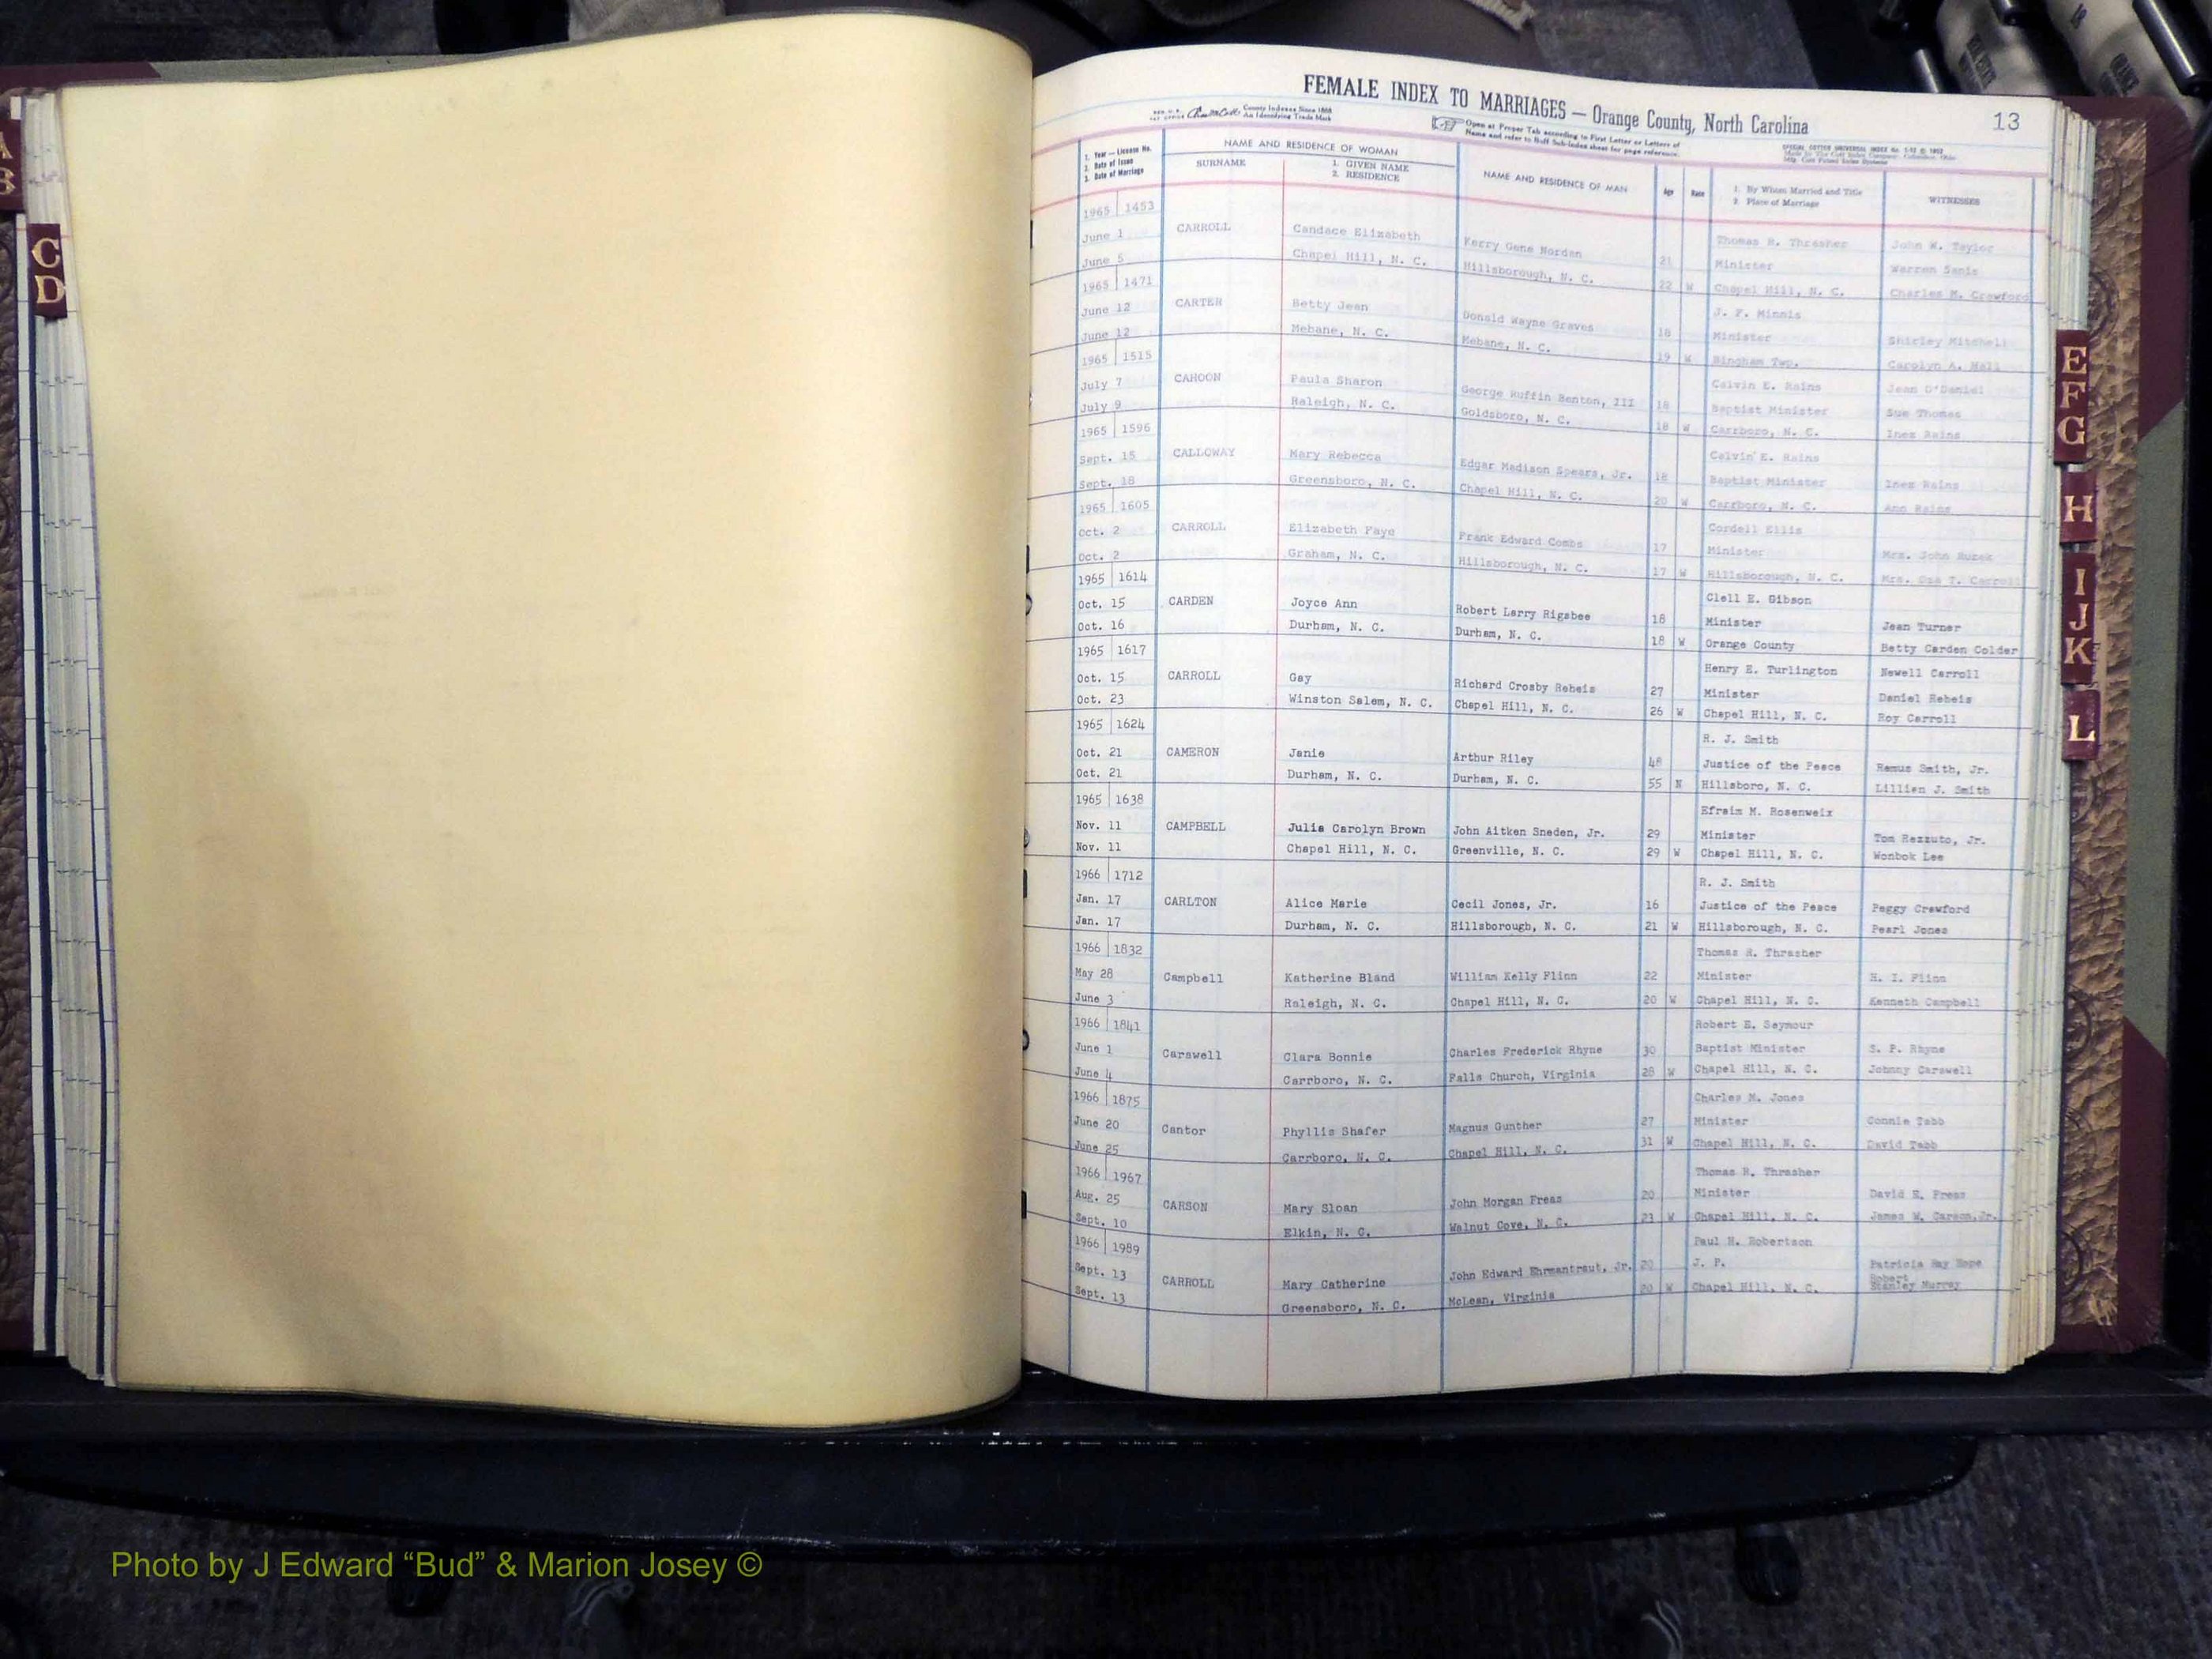 FEMALE INDEX TO MARRIAGES — Orange County, North Carolina
13
County Indexes Since 1888
An Identifying Trade Mark
Open at Proper Tab according to First Letter or Letters of
Name and refer to Buff Sub-Index sheet for page reference.
1. Year — License No.
2. Date of Issue
3. Date of Marriage
NAME AND RESIDENCE OF WOMAN
SURNAME
1. GIVEN NAME
2. RESIDENCE
NAME AND RESIDENCE OF MAN
Age
Race
1. By Whom Married and Title
2. Place of Marriage
WITNESSES
1965 1453
June 1 CARROLL Candace Elizabeth Kerry Gene Norden 21 Thomas R. Thrasher John K. Taylor
June 5 Chapel Hill, N. C. Hillsborough, N. C. 22 W Minister Warren Sanis
Chapel Hill, N. C. Charles M. Crawford
1965 1471 J. F. Minnis
June 12 CARTER Betty Jean Donald Wayne Graves 18 Minister Shirley Mitchell
June 12 Mebane, N. C. Mebane, N. C. 19 W Bingham Twp. Carolyn A. Hall
1965 1515 Calvin E. Rains Jean O'Daniel
July 7 CAHOON Paula Sharon George Ruffin Benton, III 18 Baptist Minister Sue Thomas
July 9 Raleigh, N. C. Goldsboro, N. C. 18 W Carrboro, N. C. Inez Rains
1965 1596 Calvin E. Rains
Sept. 15 CALLOWAY Mary Rebecca Edgar Madison Spears, Jr. 18 Baptist Minister Inez Rains
Sept. 18 Greensboro, N. C. Chapel Hill, N. C. 20 W Carrboro, N. C. Ann Rains
1965 1605 Cordell Ellis
Oct. 2 CARROLL Elizabeth Faye Frank Edward Combs 17 Minister Mrs. John Buzek
Oct. 2 Graham, N. C. Hillsborough, N. C. 17 W Hillsborough, N. C. Mrs. T. Carroll
1965 1614 Clell E. Gibson
Oct. 15 CARDEN Joyce Ann Robert Larry Rigsbee 18 Minister Jean Turner
Oct. 16 Durham, N. C. Durham, N. C. 18 W Orange County Betty Carden Colder
1965 1617 Henry E. Turlington Newell Carroll
Oct. 15 CARROLL Gay Richard Crosby Rebeis 27 Minister Daniel Rebeis
Oct. 23 Winston Salem, N. C. Chapel Hill, N. C. 26 W Chapel Hill, N. C. Roy Carroll
1965 1624 R. J. Smith
Oct. 21 CAMERON Janie Arthur Riley 48 Justice of the Peace Remus Smith, Jr.
Oct. 21 Durham, N. C. Durham, N. C. 55 N Hillsboro, N. C. Lillian J. Smith
1965 1638 Efraim M. Rosenweix
Nov. 11 CAMPBELL Julia Carolyn Brown John Aitken Sneden, Jr. 29 Minister Tom Rezzuto, Jr.
Nov. 11 Chapel Hill, N. C. Greenville, N. C. 29 W Chapel Hill, N. C. Wonbok Lee
1966 1712 R. J. Smith
Jan. 17 CARLTON Alice Marie Cecil Jones, Jr. 16 Justice of the Peace Peggy Crawford
Jan. 17 Durham, N. C. Hillsborough, N. C. 21 W Hillsborough, N. C. Pearl Jones
1966 1832 Thomas R. Thrasher
May 28 Campbell Katherine Bland William Kelly Flinn 22 Minister H. I. Flinn
June 3 Raleigh, N. C. Chapel Hill, N. C. 20 W Chapel Hill, N. C. Kenneth Campbell
1966 1841 Robert E. Seymour
June 1 Carswell Clara Bonnie Charles Frederick Rhyne 30 Baptist Minister S. P. Rhyne
June 4 Carrboro, N. C. Falls Church, Virginia 28 W Chapel Hill, N. C. Johnny Carswell
1966 1875 Charles M. Jones
June 20 Cantor Phyllis Shafer Magnus Gunther 27 Minister Connie Tabb
June 25 Carrboro, N. C. Chapel Hill, N. C. 31 W Chapel Hill, N. C. David Tabb
1966 1967 Thomas R. Thrasher
Aug. 25 CARSON Mary Sloan John Morgan Freas 20 Minister David E. Freas
Sept. 10 Elkin, N. C. Walnut Cove, N. C. 23 W Chapel Hill, N. C. James W. Carson, Jr.
1966 1989 Paul H. Robertson
Sept. 13 CARROLL Mary Catherine John Edward Ehrmantraut, Jr. 20 J. P. Patricia Ray Hope
Robert
Sept. 13 Greensboro, N. C. McLean, Virginia 20 W Chapel Hill, N. C. Stanley Murray
C
D
E
F
G
H
I
J
K
L
Photo by J Edward “Bud” & Marion Josey ©